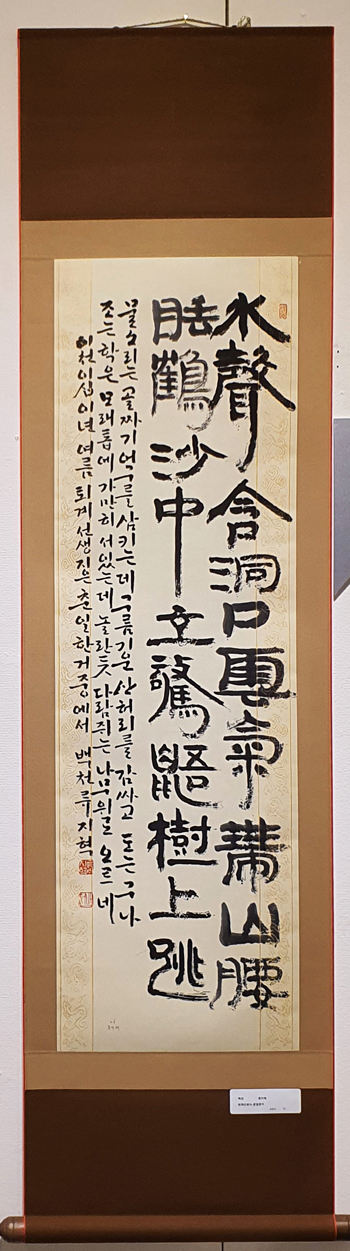 水聲含洞口雲氣帶山腰
睡鶴沙中立驚鼯樹上跳
물소리는 골짜기 억구를 삼키는데 구름기운 산허리를 감싸고 도는구나
조는 학은 모래톱에 가만히 서있는데 놀란듯 다람쥐는 나무위를 오르네
이천이십이년 여름 퇴계선생 지은 춘일한거 중에서 백천 류지혁